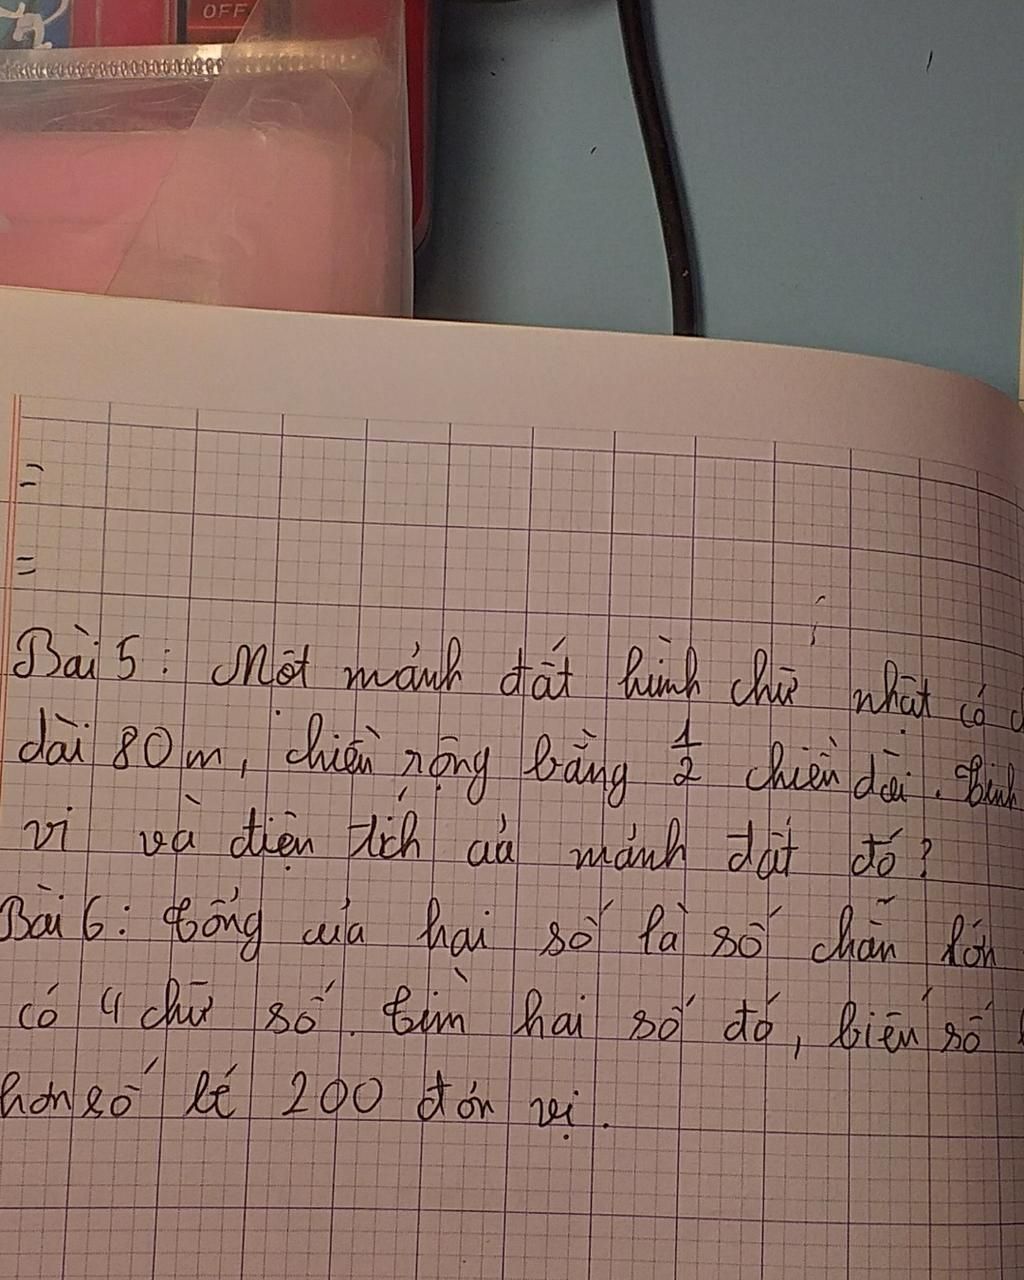 OFF
=
=
Bài 5 : Một mảnh đất hình chữ nhật có
dài 80 m, chiều rộng bằng 1/2 chiều dài. Tính
vi và diện tích của mảnh đất đó?
Bài 6 : Tổng của hai số là số chẵn lớn
có 4 chữ số. Tìm hai số đó, biến số
hơn số bé 200 đơn vị.